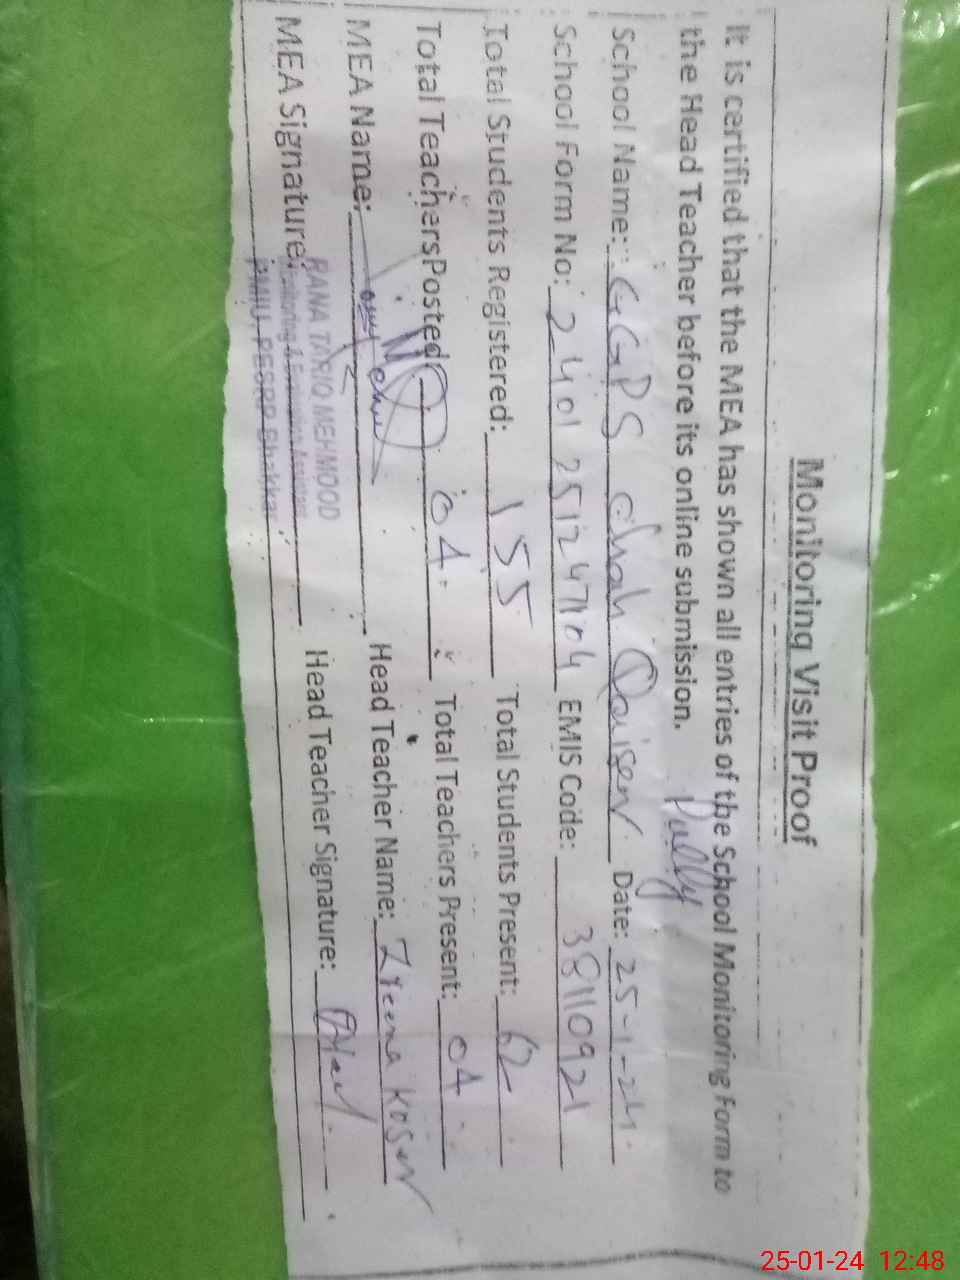 Monitoring Visit Proof
It is certified that the MEA has shown all entries of the School Monitoring Form to
the Head Teacher before its online submission.
School Name: GGPS chah Date: 25-1-24
School Form No: 2401251247104 EMIS Code: 38110921
Total Students Registered: 155 Total Students Present: 62
Total Teachers Posted 04 Total Teachers Present: 04
MEA Name: Head Teacher Name: Kosar
MEA Signature: Head Teacher Signature:
RANA TARIQ MEHMOOD
Monitoring & Evaluation Assistant
PMIU, PESRP Bhakkar
25-01-24 12:48